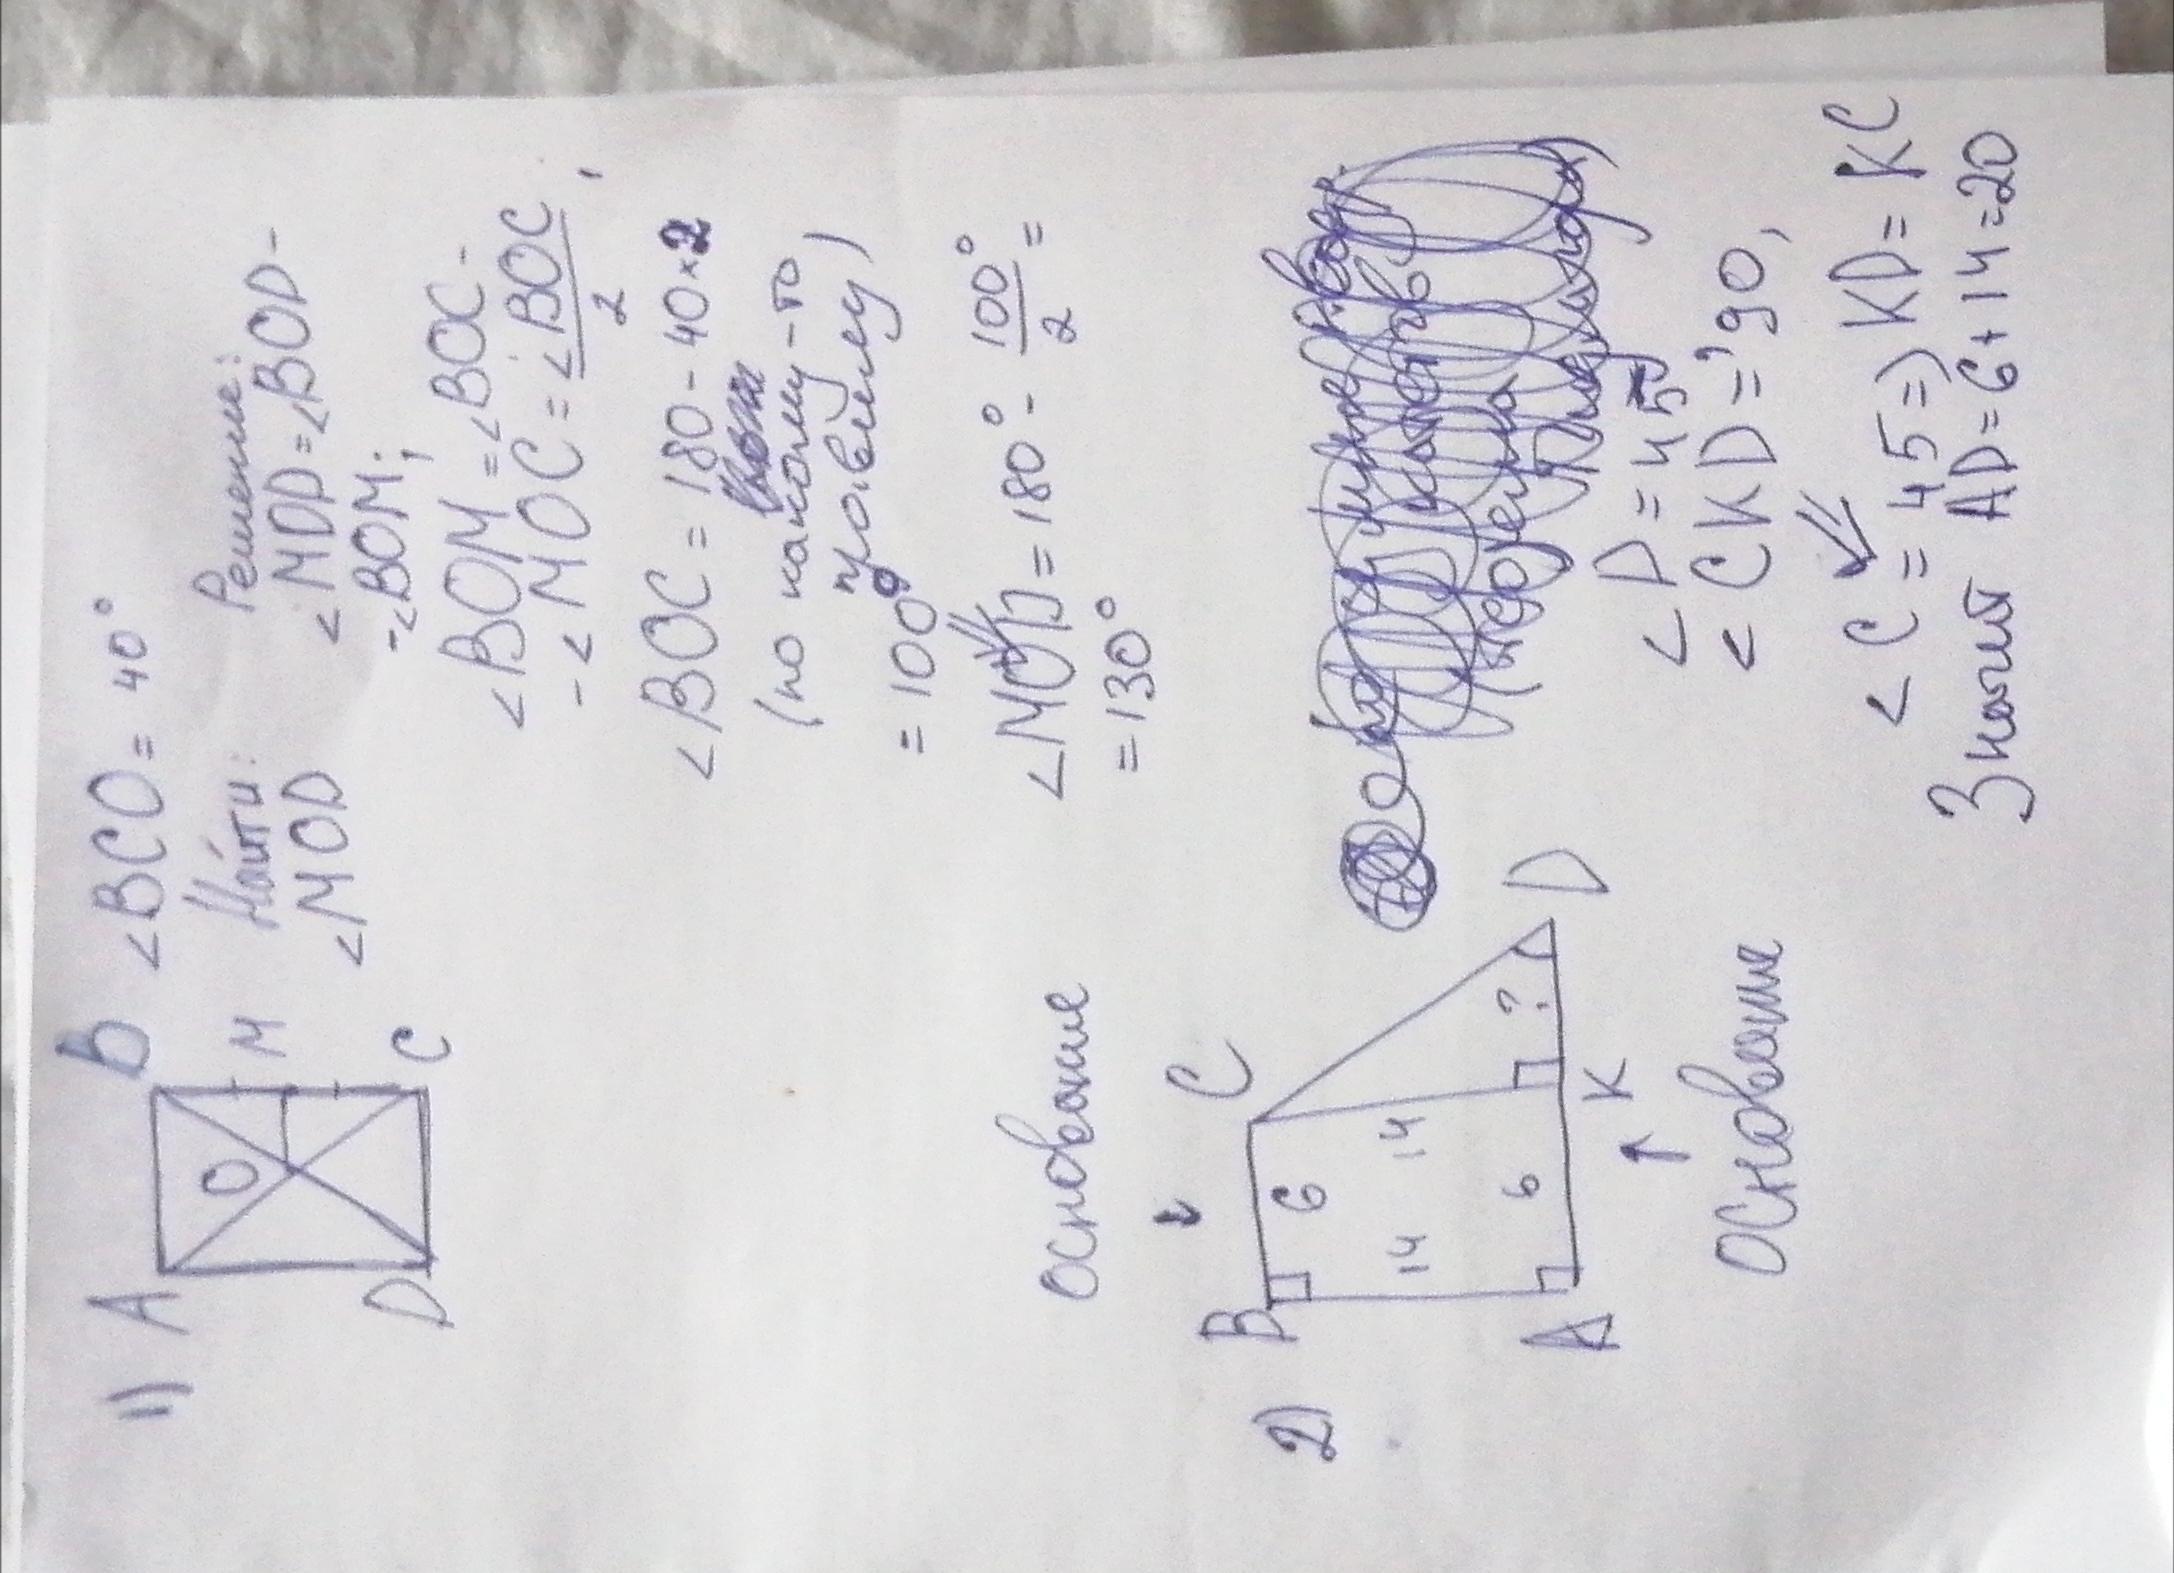 1) A B
O M
D C
<BCO = 40°
Найти:
<MOD
Решение:
<MDD = <BOD -
-<BOM;
<BOM = <BOC -
- <MOC = <BOC/2,
<BOC = 180 - 40×2
(по какому-то
правилу)
= 100°
<MOD = 180° - 100°/2 =
= 130°
основание
↓
2) B C
6
14 14
6 ?
A K D
↑
Основание
<D = 45
<CKD = 90,
⇓
<C = 45 => KD = KC
Значит AD = 6 + 14 = 20